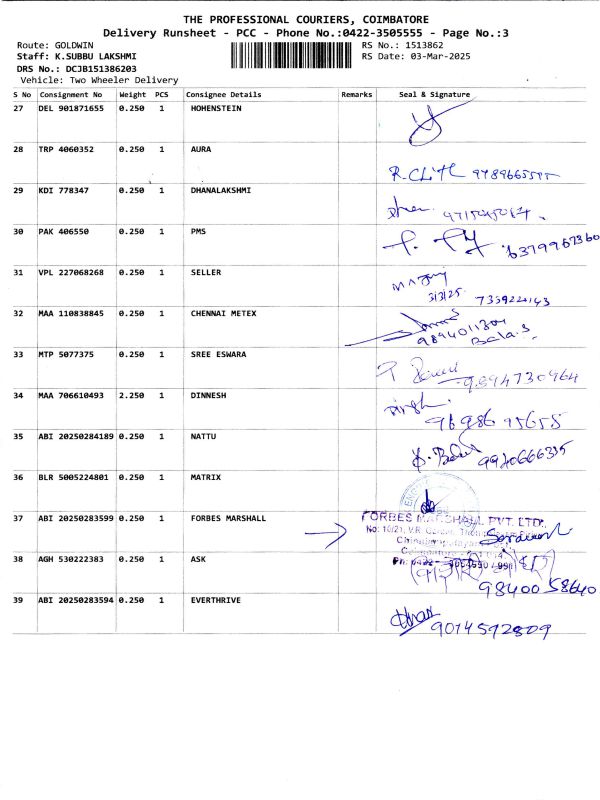 THE PROFESSIONAL COURIERS, COIMBATORE
Delivery Runsheet - PCC - Phone No.:0422-3505555 - Page No.:3
Route: GOLDWIN RS No.: 1513862
Staff: K.SUBBU LAKSHMI RS Date: 03-Mar-2025
DRS No.: DCJB151386203
Vehicle: Two Wheeler Delivery
S No Consignment No Weight PCS Consignee Details Remarks Seal & Signature
27 DEL 901871655 0.250 1 HOHENSTEIN
28 TRP 4060352 0.250 1 AURA
29 KDI 778347 0.250 1 DHANALAKSHMI
30 PAK 406550 0.250 1 PMS
6379967360
31 VPL 227068268 0.250 1 SELLER
3/3/25
32 MAA 110838845 0.250 1 CHENNAI METEX
33 MTP 5077375 0.250 1 SREE ESWARA
9894730964
34 MAA 706610493 2.250 1 DINNESH
96986 95655
35 ABI 20250284189 0.250 1 NATTU
9920666335
36 BLR 5005224801 0.250 1 MATRIX
37 ABI 20250283599 0.250 1 FORBES MARSHALL
FORBES MARSHALL PVT. LTD.,
38 AGH 530222383 0.250 1 ASK
9840058640
39 ABI 20250283594 0.250 1 EVERTHRIVE
9074592809